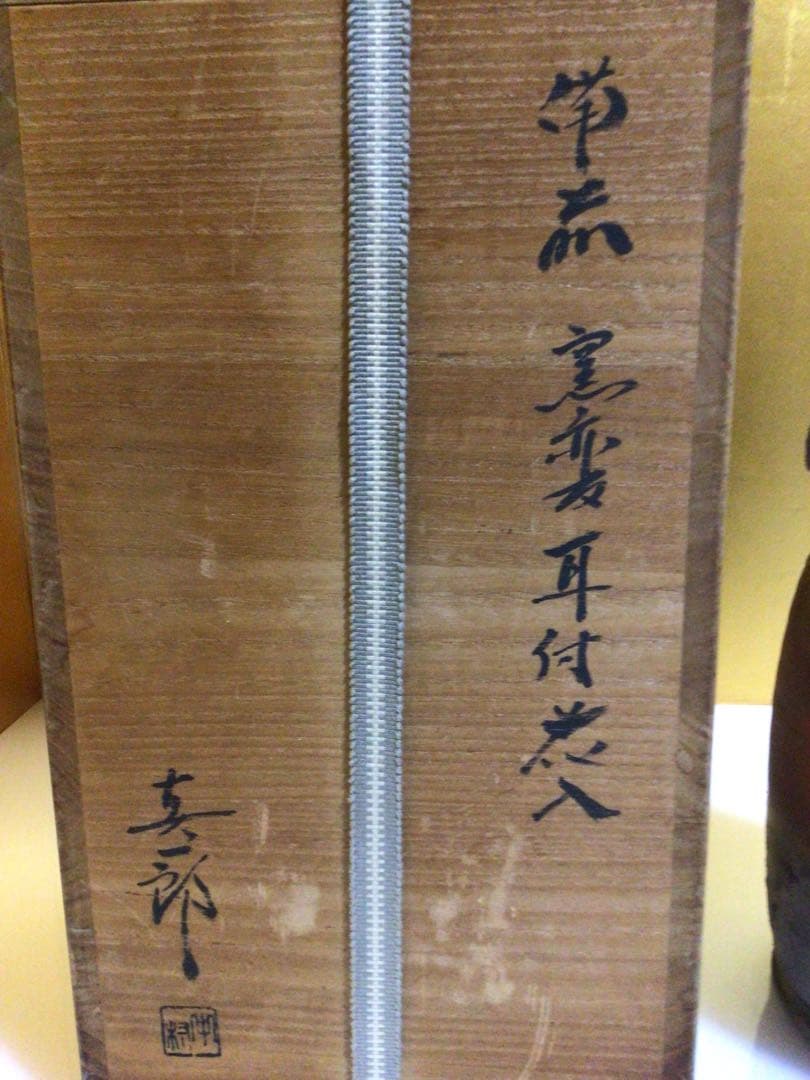 備前 窯変耳付花入
真一郎